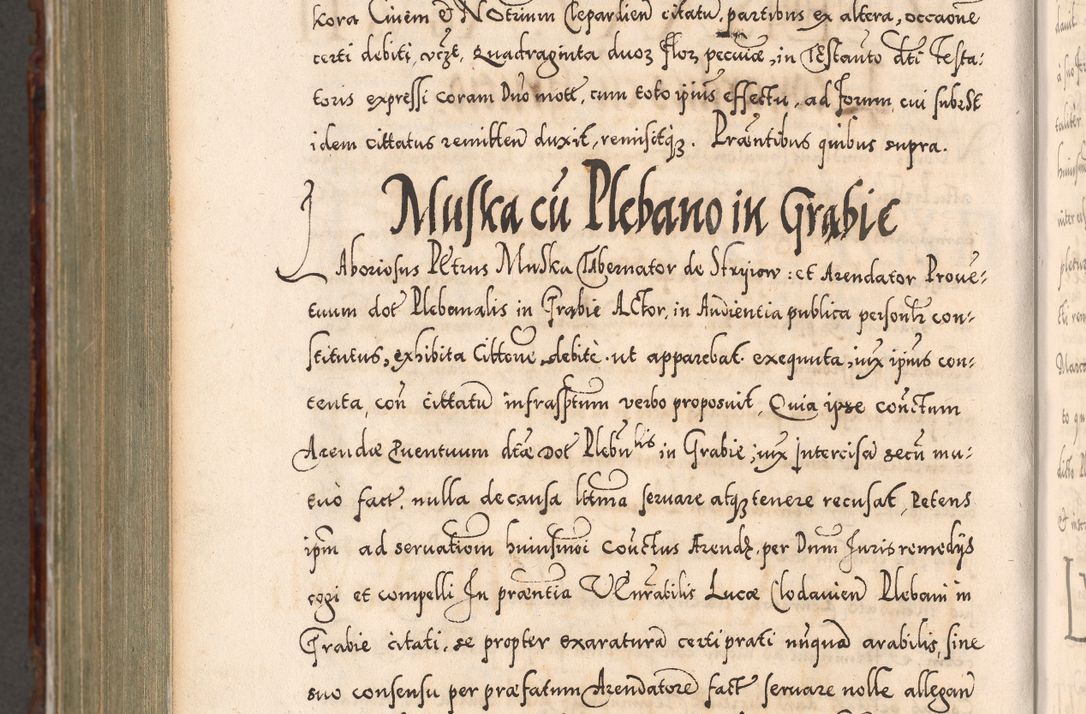 kora Ciuem & Notrium Clepardien citatu, partibus ex altera, occaone
certi debiti, vczt, Quadraginta duoꝝ Floꝝ pecuiæ, in Testauto dti Testa:
toris expressi coram Duo mott, cum toto ipius effectu, ad Forum, cui subest
idem cittatus remitten duxit, remisitqꝫ. Præntibus quibus supra.
Muska cū Plebano in Grabie
Laboriosus Petrus Muska Tabernator de Stryiow: et Arendator Proue:
tuum dot Plebanalis in Grabie Actor, in Audientia publica personlr con:
stitutus, exhibita Cittone, debite ut apparebat exequuta, iux ipius con:
tenta, con cittatu infrasptum verbo proposuit, Quia ipse conctum
Arendæ Puentuum dtæ dot Plebnlis in Grabie, iux intercisa secu mu:
tuo fact, nulla de causa lttma seruare atqꝫ tenere recusat, Petens
ipm ad seruationm huiusmoi conctus Arendę, per Dnum Juris remedijs
cogi et compelli In præntia Venrabilis Lucæ Clodauien Plebani in
Grabie citati, se propter exaratura certi prati nunqua arabilis, sine
suo consensu per præfatum Arendatore fact seruare nolle allegan